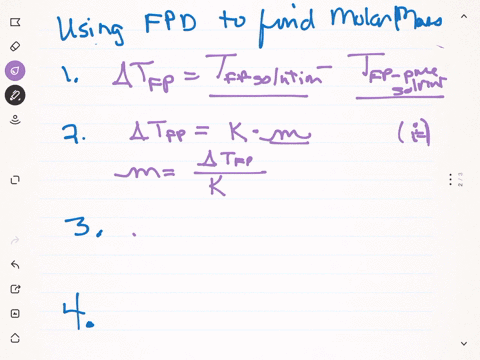 Using FPD to find Molar Mass
1. ΔTFP = TFP solution - TFP-pure solvent
2. ΔTFP = K · m (i=)
m = ΔTFP / K
3.
4.